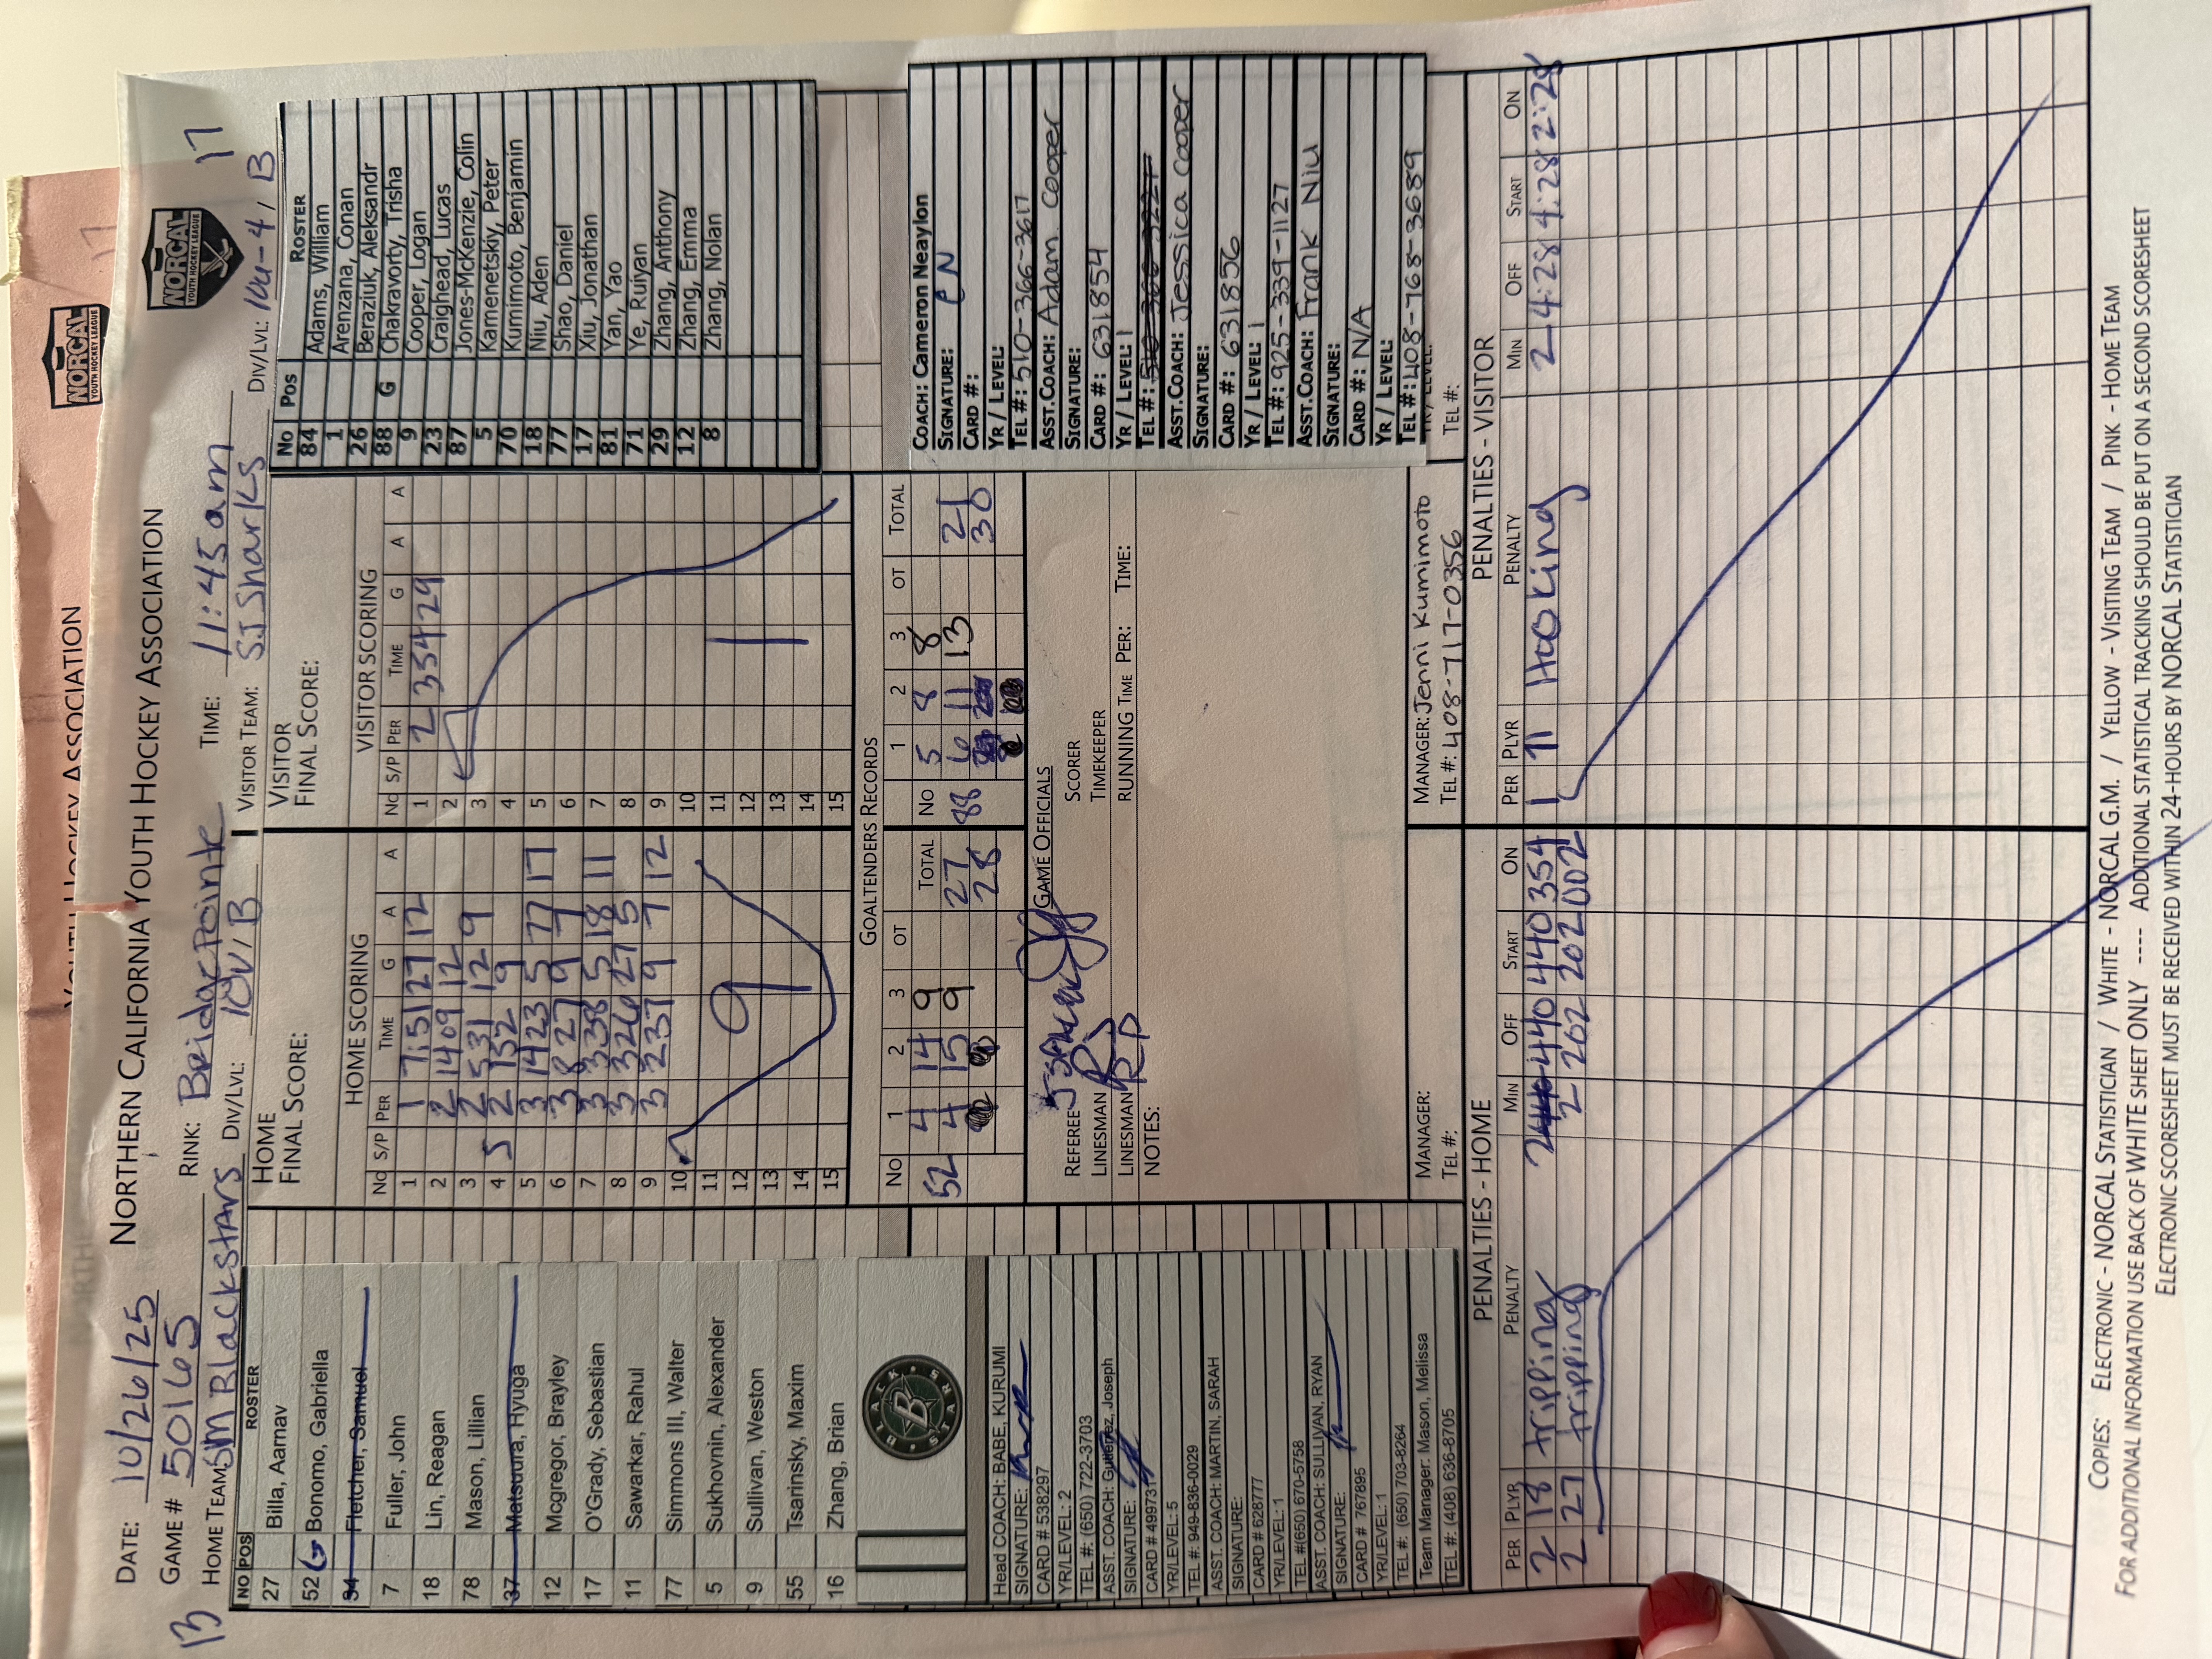 NORCAL
YOUTH HOCKEY LEAGUE
YOUTH HOCKEY ASSOCIATION
17
NORTHERN CALIFORNIA YOUTH HOCKEY ASSOCIATION
NORCAL
YOUTH HOCKEY LEAGUE
17
13
DATE: 10/26/25
GAME # 50165
RINK: Bridgepointe
TIME: 11:45am
HOME TEAM SM Blackstars
DIV/LVL: 10U/B
VISITOR TEAM: SJ Sharks
DIV/LVL: 10U-4/B
NO POS ROSTER
27 Billa, Aarnav
52 G Bonomo, Gabriella
94 Fletcher, Samuel
7 Fuller, John
18 Lin, Reagan
78 Mason, Lillian
37 Matsuura, Hyuga
12 Mcgregor, Brayley
17 O'Grady, Sebastian
11 Sawarkar, Rahul
77 Simmons III, Walter
5 Sukhovnin, Alexander
9 Sullivan, Weston
55 Tsarinsky, Maxim
16 Zhang, Brian
BLACK STARS
B
Head COACH: BABE, KURUMI
SIGNATURE:
CARD # 538297
YR/LEVEL: 2
TEL #: (650) 722-3703
ASST. COACH: Gutierrez, Joseph
SIGNATURE:
CARD # 499731
YR/LEVEL: 5
TEL #: 949-836-0029
ASST. COACH: MARTIN, SARAH
SIGNATURE:
CARD # 628777
YR/LEVEL: 1
TEL #(650) 670-5758
ASST. COACH: SULLIVAN, RYAN
SIGNATURE:
CARD # 767895
YR/LEVEL: 1
TEL #: (650) 703-8264
Team Manager: Mason, Melissa
TEL #: (408) 636-8705
HOME
FINAL SCORE:
HOME SCORING
No S/P PER TIME G A A
1 1 7:51 27 12
2 2 1409 12
3 2 531 12 9
4 S 2 132 9
5 3 1423 5 77 17
6 3 827 9 7
7 3 338 5 18 11
8 3 326 27 5
9 3 237 9 7 12
10
11
12
13
14
15
9
VISITOR
FINAL SCORE:
VISITOR SCORING
No S/P PER TIME G A A
1 2 334 29
2
3
4
5
6
7
8
9
10
11
12
13
14
15
1
No Pos ROSTER
84 Adams, William
1 Arenzana, Conan
26 Beraziuk, Aleksandr
88 G Chakravorty, Trisha
9 Cooper, Logan
23 Craighead, Lucas
87 Jones-McKenzie, Colin
5 Kamenetskiy, Peter
70 Kumimoto, Benjamin
18 Niu, Aden
77 Shao, Daniel
17 Xiu, Jonathan
81 Yan, Yao
71 Ye, Ruiyan
29 Zhang, Anthony
12 Zhang, Emma
8 Zhang, Nolan
GOALTENDERS RECORDS
No 1 2 3 OT TOTAL
52 4 14 9 27
4 15 9 28
No 1 2 3 OT TOTAL
88 5 8 8 21
6 11 13 30
GAME OFFICIALS
REFEREE
LINESMAN
LINESMAN
NOTES:
SCORER
TIMEKEEPER
RUNNING TIME PER: TIME:
COACH: Cameron Neaylon
SIGNATURE: CN
CARD #:
YR / LEVEL:
TEL #: 510-366-3617
ASST.COACH: Adam Cooper
SIGNATURE:
CARD #: 631854
YR / LEVEL: 1
TEL #:
ASST.COACH: Jessica Cooper
SIGNATURE:
CARD #: 631856
YR / LEVEL: 1
TEL #: 925-339-1127
ASST.COACH: Frank Niu
SIGNATURE:
CARD #: N/A
YR / LEVEL:
TEL #: 408-768-3689
TEL #:
MANAGER:
TEL #:
MANAGER: Jenni Kumimoto
TEL #: 408-717-0356
PENALTIES - HOME
PER PLYR PENALTY MIN OFF START ON
2 18 tripping 2 440 440 354
2 27 tripping 2 202 202 002
PENALTIES - VISITOR
PER PLYR PENALTY MIN OFF START ON
1 71 Hooking 2 4:28 4:28 2:28
COPIES: ELECTRONIC - NORCAL STATISTICIAN / WHITE - NORCAL G.M. / YELLOW - VISITING TEAM / PINK - HOME TEAM
FOR ADDITIONAL INFORMATION USE BACK OF WHITE SHEET ONLY ---- ADDITIONAL STATISTICAL TRACKING SHOULD BE PUT ON A SECOND SCORESHEET
ELECTRONIC SCORESHEET MUST BE RECEIVED WITHIN 24-HOURS BY NORCAL STATISTICIAN